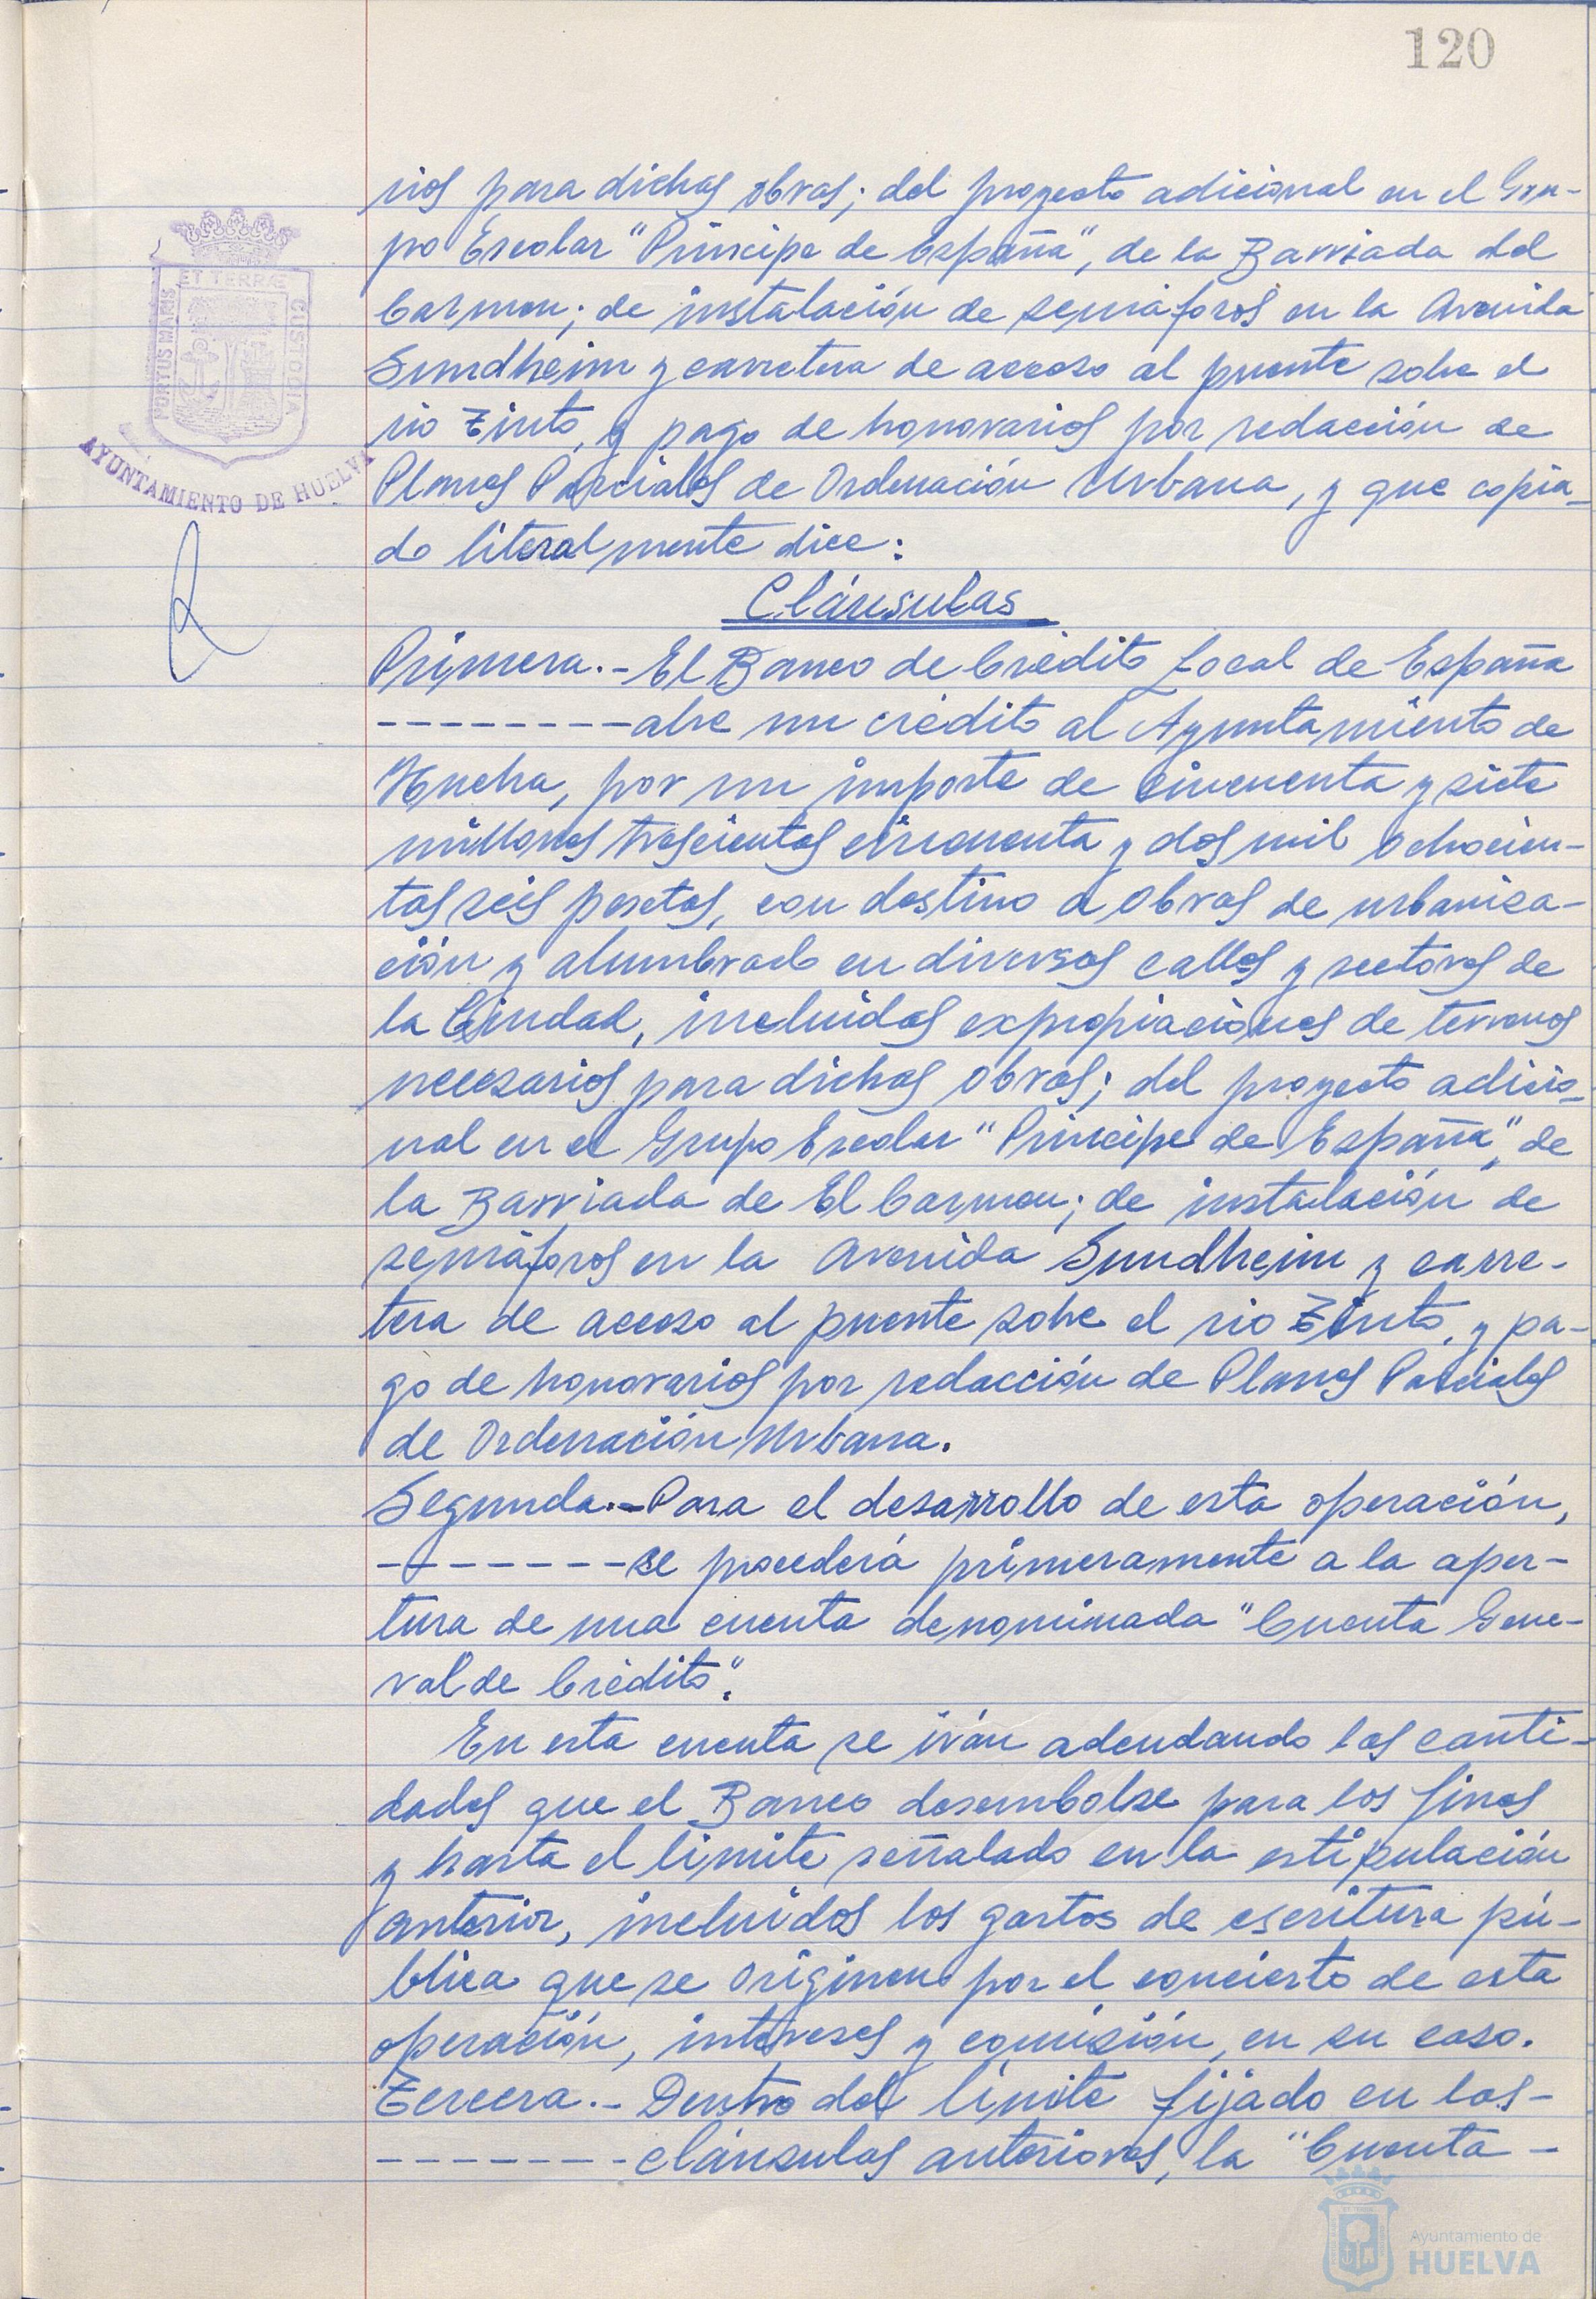 120
rios para dichas obras; del proyecto adicional en el Gru-
po Escolar "Príncipe de España", de la Barriada del
Carmen; de instalación de semáforos en la Avenida
Sundheim y carretera de acceso al puente sobre el
rio Tinto, y pago de honorarios por redacción de
Planes Parciales de Ordenación Urbana, y que copia-
do literalmente dice:
Cláusulas
Primera.- El Banco de Crédito Local de España
--------abre un crédito al Ayuntamiento de
Huelva, por un importe de cincuenta y siete
millones trescientas cincuenta y dos mil ochocien-
tas seis pesetas, con destino a obras de urbaniza-
ción y alumbrado en diversas calles y sectores de
la Ciudad, incluidas expropiaciones de terrenos
necesarios para dichas obras; del proyecto adicio-
nal en el Grupo Escolar "Príncipe de España", de
la Barriada de El Carmen; de instalación de
semáforos en la Avenida Sundheim y carre-
tera de acceso al puente sobre el rio Tinto, y pa-
go de honorarios por redacción de Planes Parciales
de Ordenación Urbana.
Segunda.- Para el desarrollo de esta operación,
-------se procederá primeramente a la aper-
tura de una cuenta denominada "Cuenta Gene-
ral de Crédito".
En esta cuenta se irán adeudando las canti-
dades que el Banco desembolse para los fines
y hasta el límite señalado en la estipulación
anterior, incluidos los gastos de escritura pú-
blica que se originen por el concierto de esta
operación, intereses y comisión, en su caso.
Tercera.- Dentro del límite fijado en las-
-------cláusulas anteriores, la "Cuenta -
PORTUS MARIS
ET TERRÆ
CUSTODIA
AYUNTAMIENTO DE HUELVA
Ayuntamiento de
HUELVA